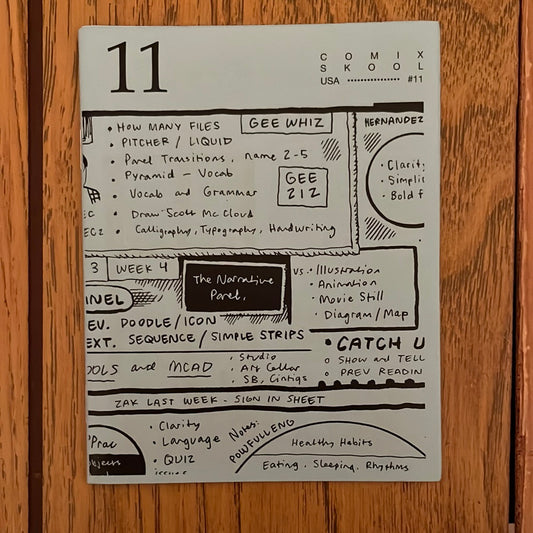 11
COMIX
SKOOL
USA ................ #11
• HOW MANY FILES
GEE WHIZ
• PITCHER / LIQUID
• Panel Transitions, name 2-5
• Pyramid - Vocab
• Vocab and Grammar
GEE
212
• Draw Scott McCloud
• Calligraphy, Typography, Handwriting
HERNANDEZ
• Clarity
• Simplic
• Bold f
EC
EC2
3
WEEK 4
The Narrative
Panel.
VS. • Illustration
• Animation
• Movie Still
• Diagram / Map
NNEL
EV. DOODLE / ICON
EXT. SEQUENCE / SIMPLE STRIPS
OOLS and MCAD
• Studio
• Art Cellar
• SB, Cintiqs
• CATCH U
o SHOW and TELL
o PREV READIN
ZAK LAST WEEK - SIGN IN SHEET
"Prac
objects
• Clarity
• Language
• QUIZ
Notes:
POWFULLENG
Healthy Habits
Eating. Sleeping. Rhythms